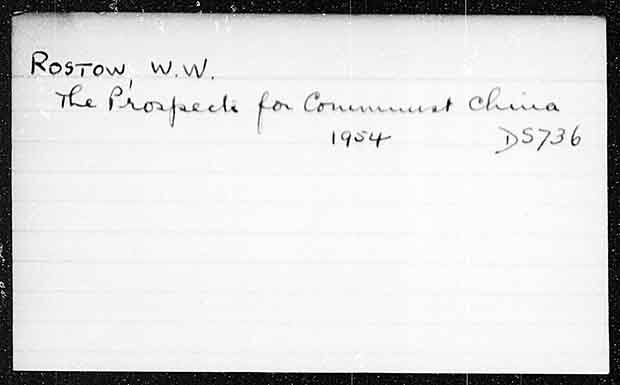 ROSTOW, W.W.
The Prospects for Communist China
1954 DS736